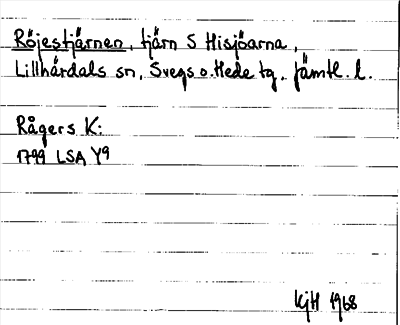 Röjestjärnen, tjärn S Hisjöarna,
Lillhärdals sn, Svegs o. Hede tg., Jämtl. l.
Rågers K:
1799 LSA Y9
KjH 1968